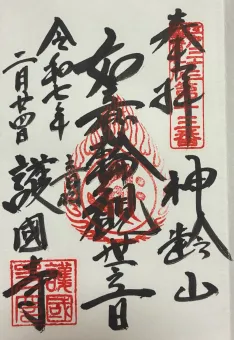 奉拝
神齢山
如意輪観世音
音羽
護國寺
令和七年
二月廿四日
護國寺